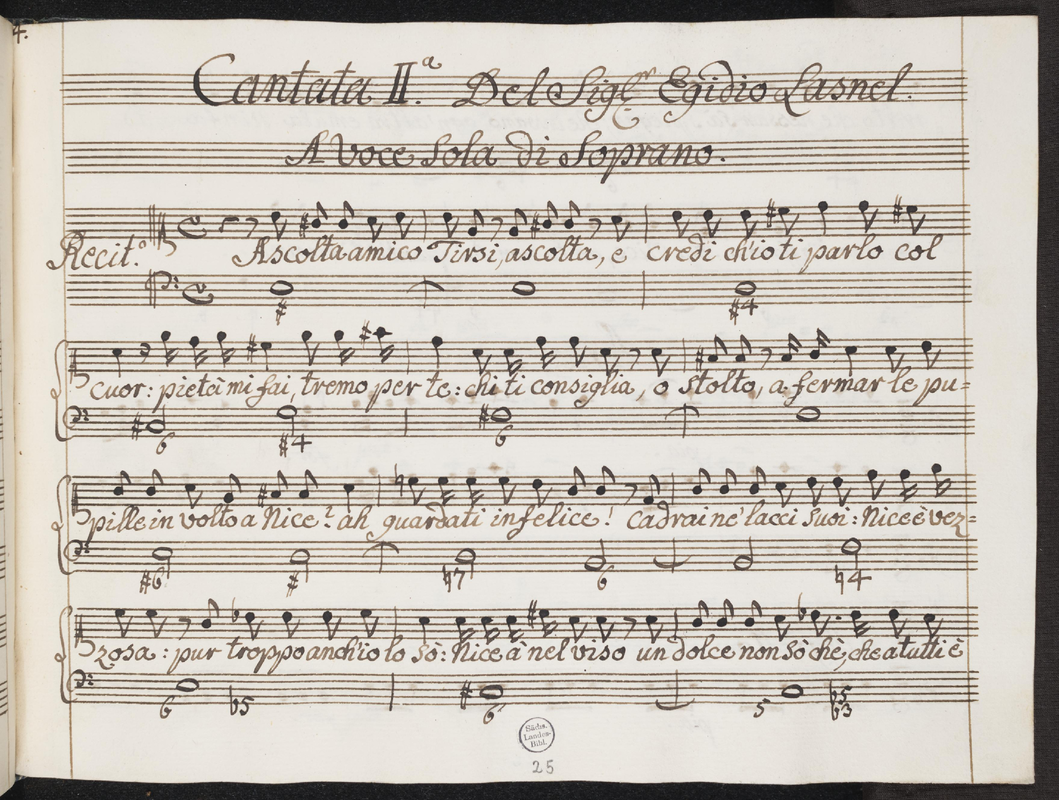 4.
Cantata II.a Del Sigr. Egidio Lasnel.
A Voce Sola di Soprano.
Recit.o Ascolta amico Tirsi, ascolta, e credi ch'io ti parlo col
#
#4
cuor: pietà mi fai, tremo per te: chi ti consiglia, o stolto, a fermar le pu=
6 #4 6
pille in volto a Nice? ah guardati infelice! Cadrai ne' lacci suoi: Nice è vez=
#6 # ♮7 6 ♮4
zosa: pur troppo anch'io lo sò: Nice à nel viso un dolce non sò chè, che a tutti è
6 b5 6 5 b5
b3
Sächs.
Landes-
Bibl.
25